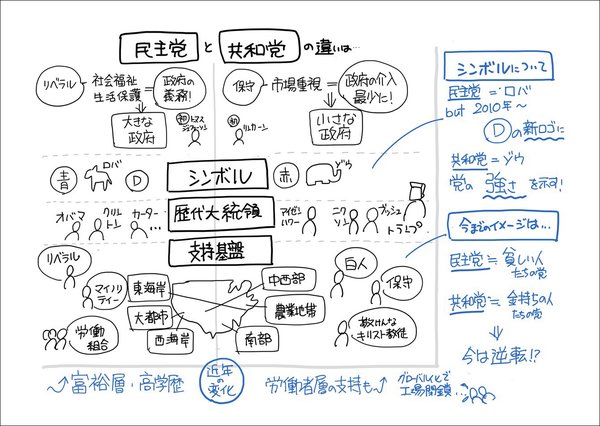 民主党 と 共和党 の違いは…
リベラル
社会福祉
生活保護
=
政府の
義務!
大きな
政府
初
トマス
ジェファソン
保守
市場重視
=
政府の介入
最少に!
小さな
政府
初
リンカーン
青
ロバ
D
シンボル
赤
ゾウ
オバマ
クリン
トン
カーター
…
歴代大統領
アイゼン
ハワー
ニク
ソン
ブッシュ
トランプ
支持基盤
リベラル
マイノリ
ティー
労働
組合
東海岸
大都市
西海岸
中西部
農業地帯
南部
白人
保守
敬けんな
キリスト教徒
富裕層・高学歴
近年
の
変化
労働者層の支持も
グローバル化で
工場閉鎖…
シンボルについて
民主党 = ロバ
but 2010年~
D の新ロゴに
共和党 = ゾウ
党の 強さ を示す!
今までのイメージは…
民主党 ≒ 貧しい人
たちの党
共和党 ≒ 金持ちの人
たちの党
今は逆転!?